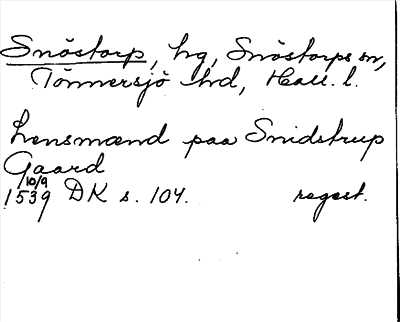 Snöstorp, hg, Snöstorps sn,
Tönnersjö hd, Hall. l.
Lensmænd paa Snidstrup
Gaard
10/9
1539 DK s. 104. regest.